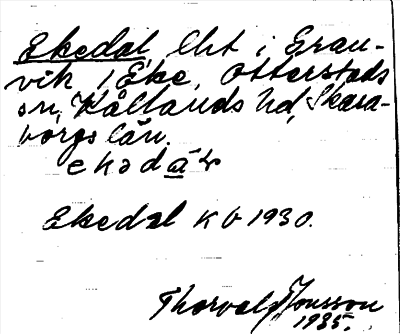 Ekedal lht i Gran-
vik, Eke, Otterstads
sn, Kållands hd, Skara-
borgs län.
ekədä
Ekedal kb 1930.
Thorvald Jonsson
1935.